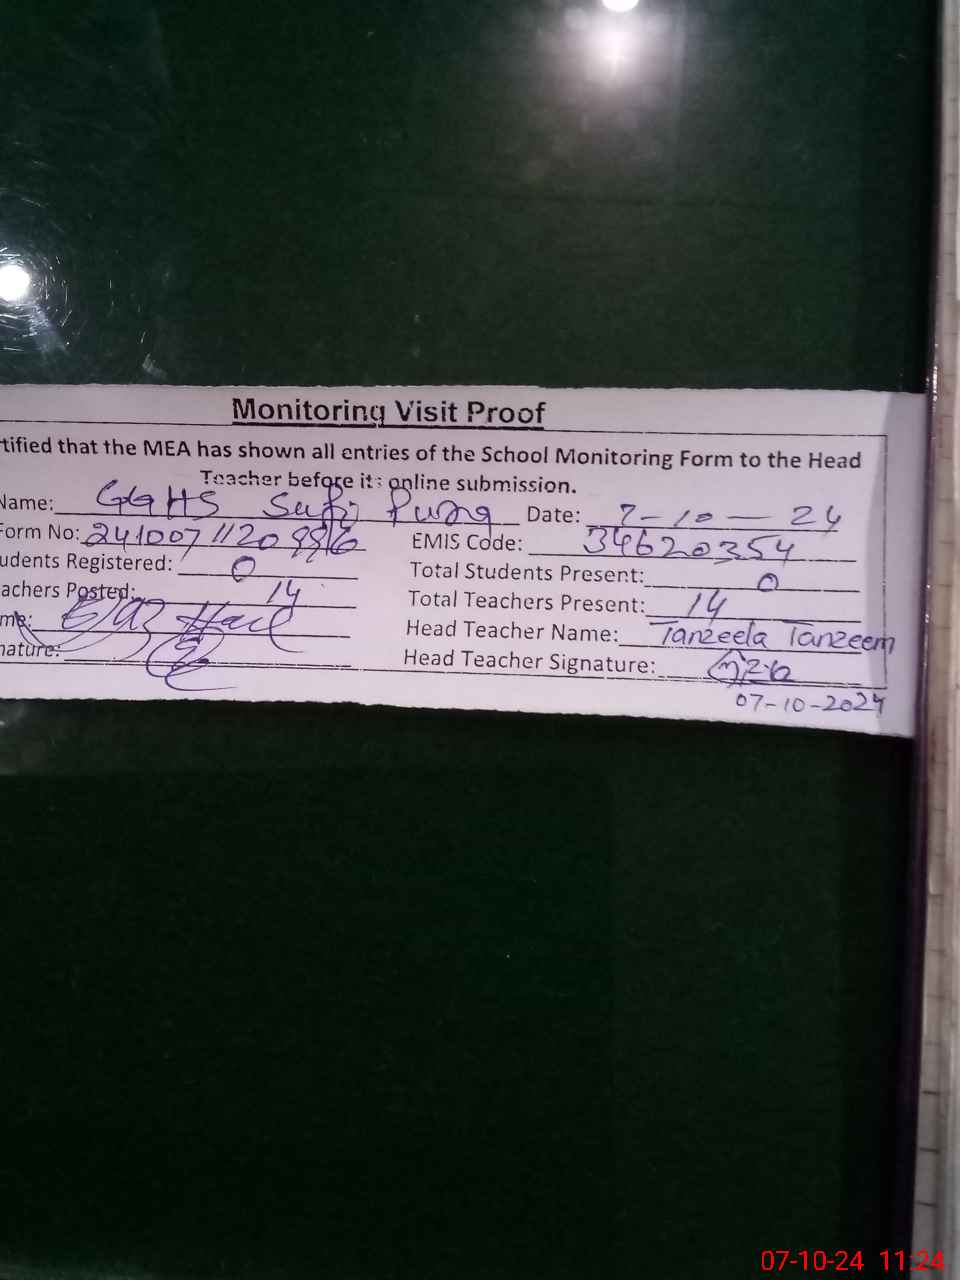 Monitoring Visit Proof
rtified that the MEA has shown all entries of the School Monitoring Form to the Head
Teacher before its online submission.
Name: GGHS Sufi Pura Date: 7-10-24
Form No: EMIS Code: 34620354
udents Registered: 0 Total Students Present: 0
achers Posted: 14 Total Teachers Present: 14
me: Head Teacher Name: Tanzeela Tanzeem
nature: Head Teacher Signature:
07-10-2024
07-10-24 11:24